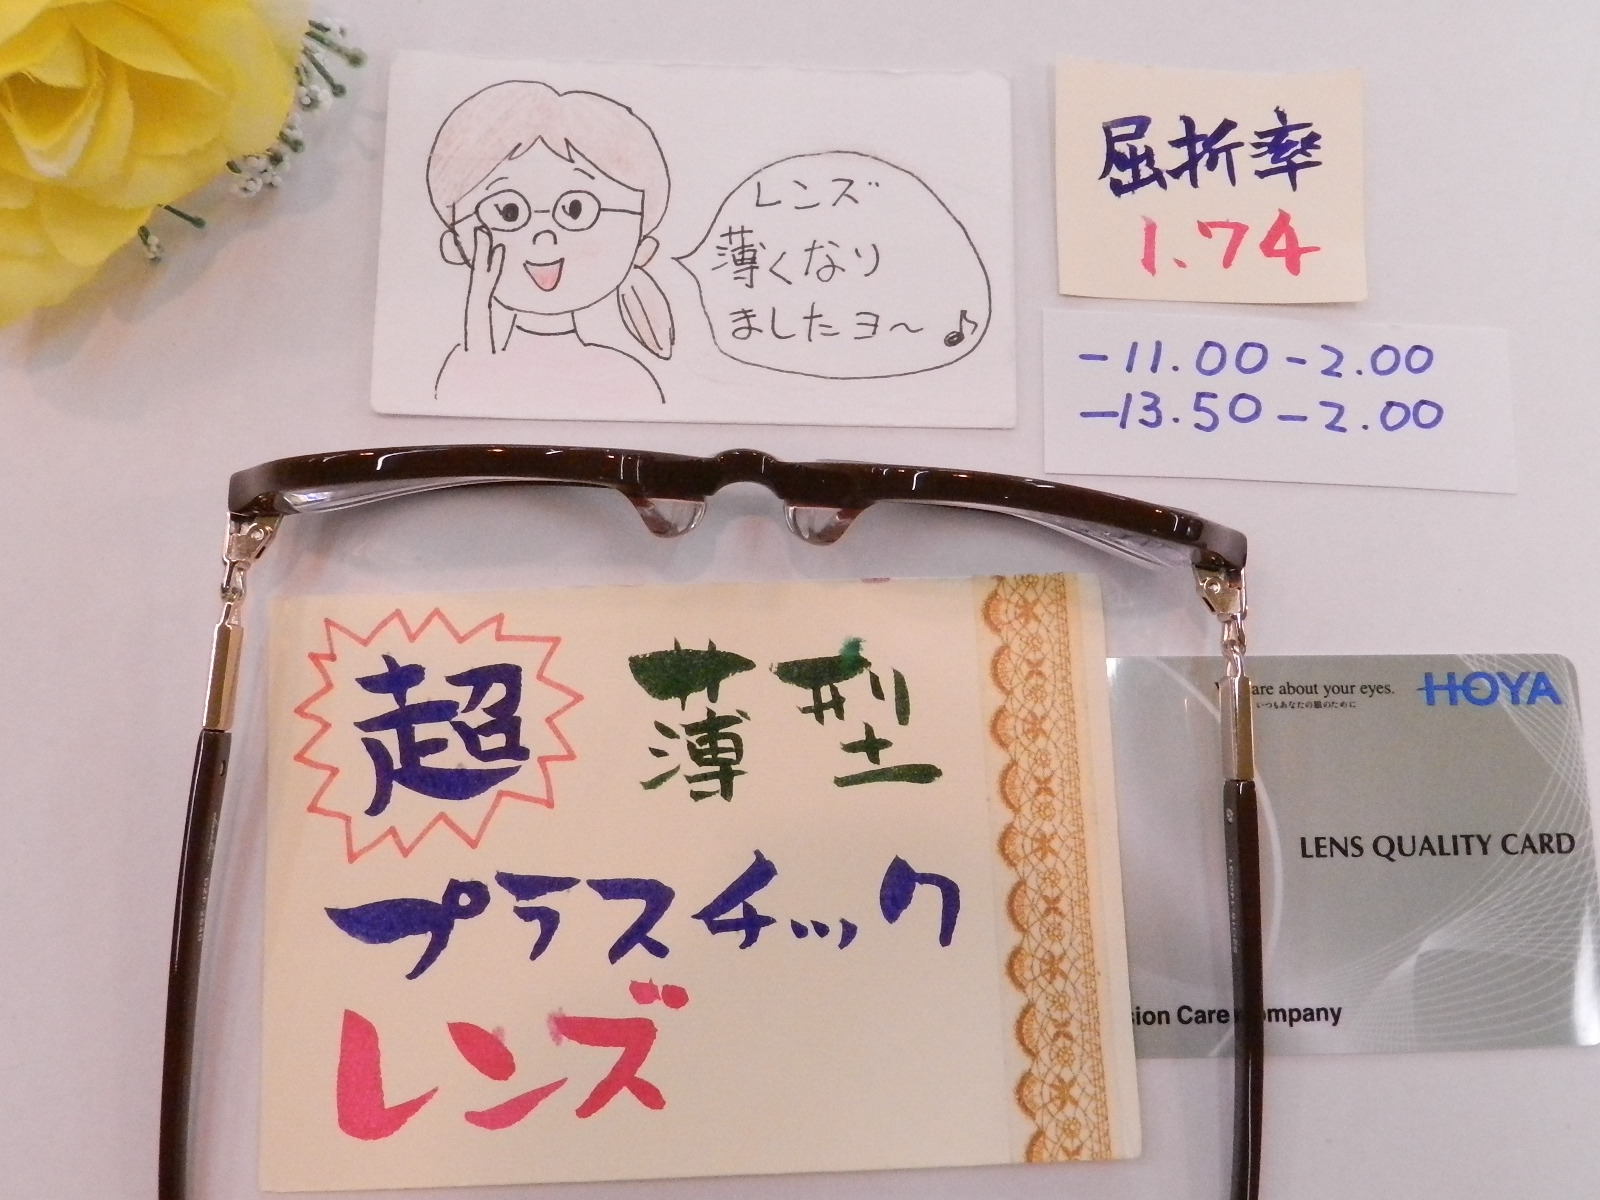 レンズ
薄くなり
ましたヨ～♪
屈折率
1.74
-11.00-2.00
-13.50-2.00
超薄型
プラスチック
レンズ
are about your eyes.
いつもあなたの眼のために
HOYA
LENS QUALITY CARD
Care